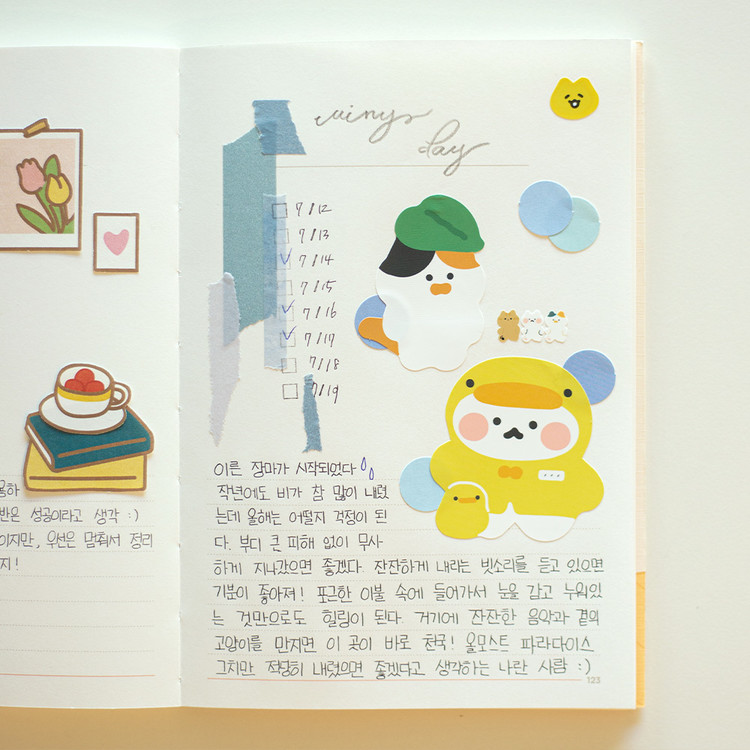 용하
반은 성공이라고 생각 :)
이지만, 우선은 멈춰서 정리
지!
rainys
day
7/12
7/13
7/14
7/15
7/16
7/17
7/18
7/19
이른 장마가 시작되었다
작년에도 비가 참 많이 내렸
는데 올해는 어떨지 걱정이 된
다. 부디 큰 피해 없이 무사
하게 지나갔으면 좋겠다. 잔잔하게 내리는 빗소리를 듣고 있으면
기분이 좋아져! 포근한 이불 속에 들어가서 눈을 감고 누워있
는 것만으로도 힐링이 된다. 거기에 잔잔한 음악과 곁의
고양이를 만지면 이 곳이 바로 천국! 올모스트 파라다이스
그치만 적당히 내렸으면 좋겠다고 생각하는 나란 사람 :)
123